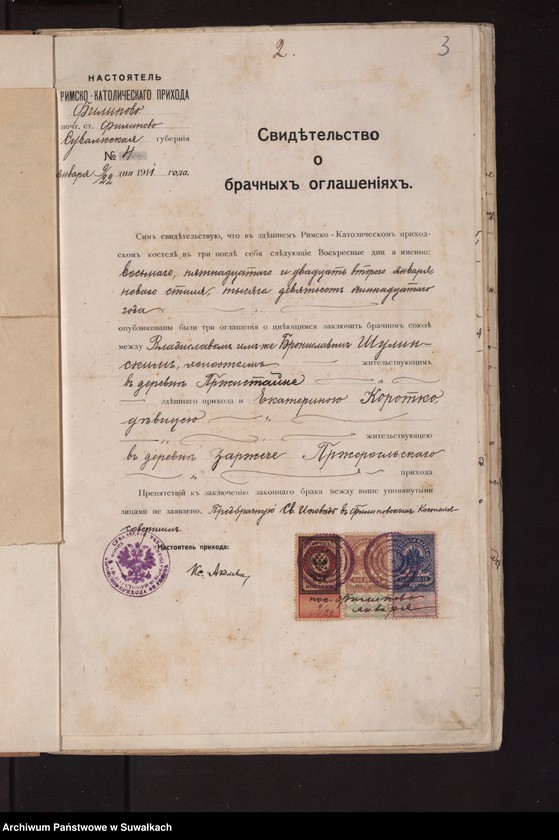 2.
3
НАСТОЯТЕЛЬ
РИМСКО-КАТОЛИЧЕСКАГО ПРИХОДА
Филипово
почт. ст. Филипово
Сувалкская губернія
№ 4
января 9/22 дня 1911 года.
Свидѣтельство
о
брачныхъ оглашеніяхъ.
Симъ свидѣтельствую, что въ здѣшнемъ Римско-Католическомъ приход-
скомъ костелѣ въ три послѣ себя слѣдующіе Воскресные дни а именно:
Восьмаго, пятнадцатаго и двадцать втораго января
новаго стиля, тысяча девятьсотъ одиннадцатаго
года
опубликованы были три оглашенія о имѣющимся заключить брачномъ союзѣ
между Владиславомъ имъ-же Брониславомъ Шулин-
скимъ, холостымъ жительствующимъ
въ деревнѣ Пржистайне
здѣшняго прихода и Екатериною Коротко,
дѣвицею
жительствующею
въ деревнѣ Заржече Пржеросльскаго
прихода
Препятствій къ заключенію законнаго брака между выше упомянутыми
лицами не заявлено. Предбрачную Св. Исповѣдь въ Филиповскомъ Костелѣ
совершилъ.
Настоятель прихода:
Кс.
пос. Филипово
9/22 января
Archiwum Państwowe w Suwałkach